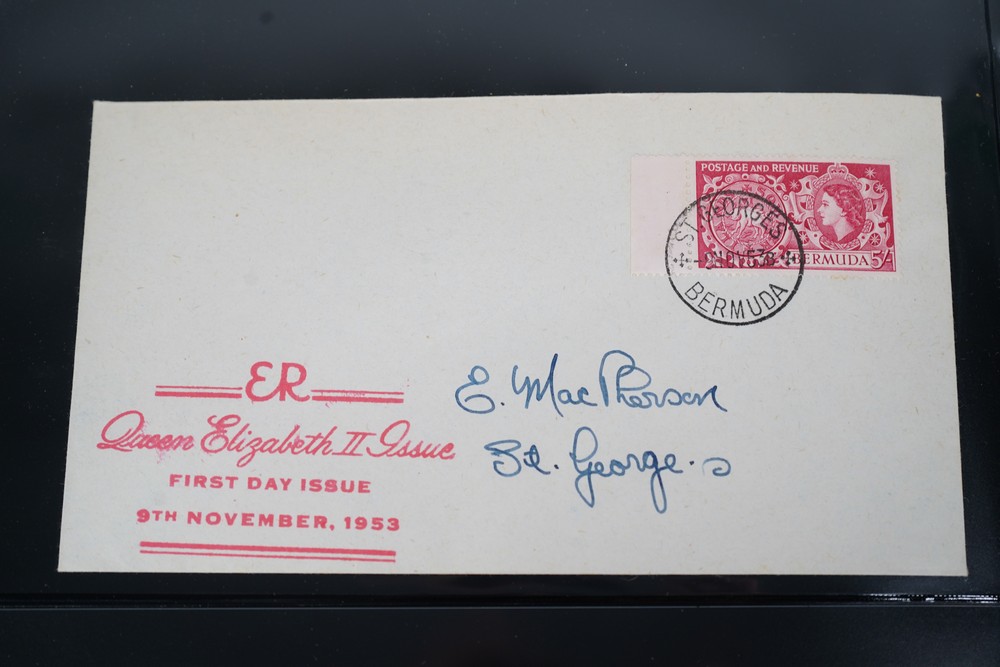 POSTAGE AND REVENUE
BERMUDA 5/-
ST GEORGES
-9 NOV 53
BERMUDA
E. MacPherson
St. George's
ER
Queen Elizabeth II Issue
FIRST DAY ISSUE
9TH NOVEMBER, 1953